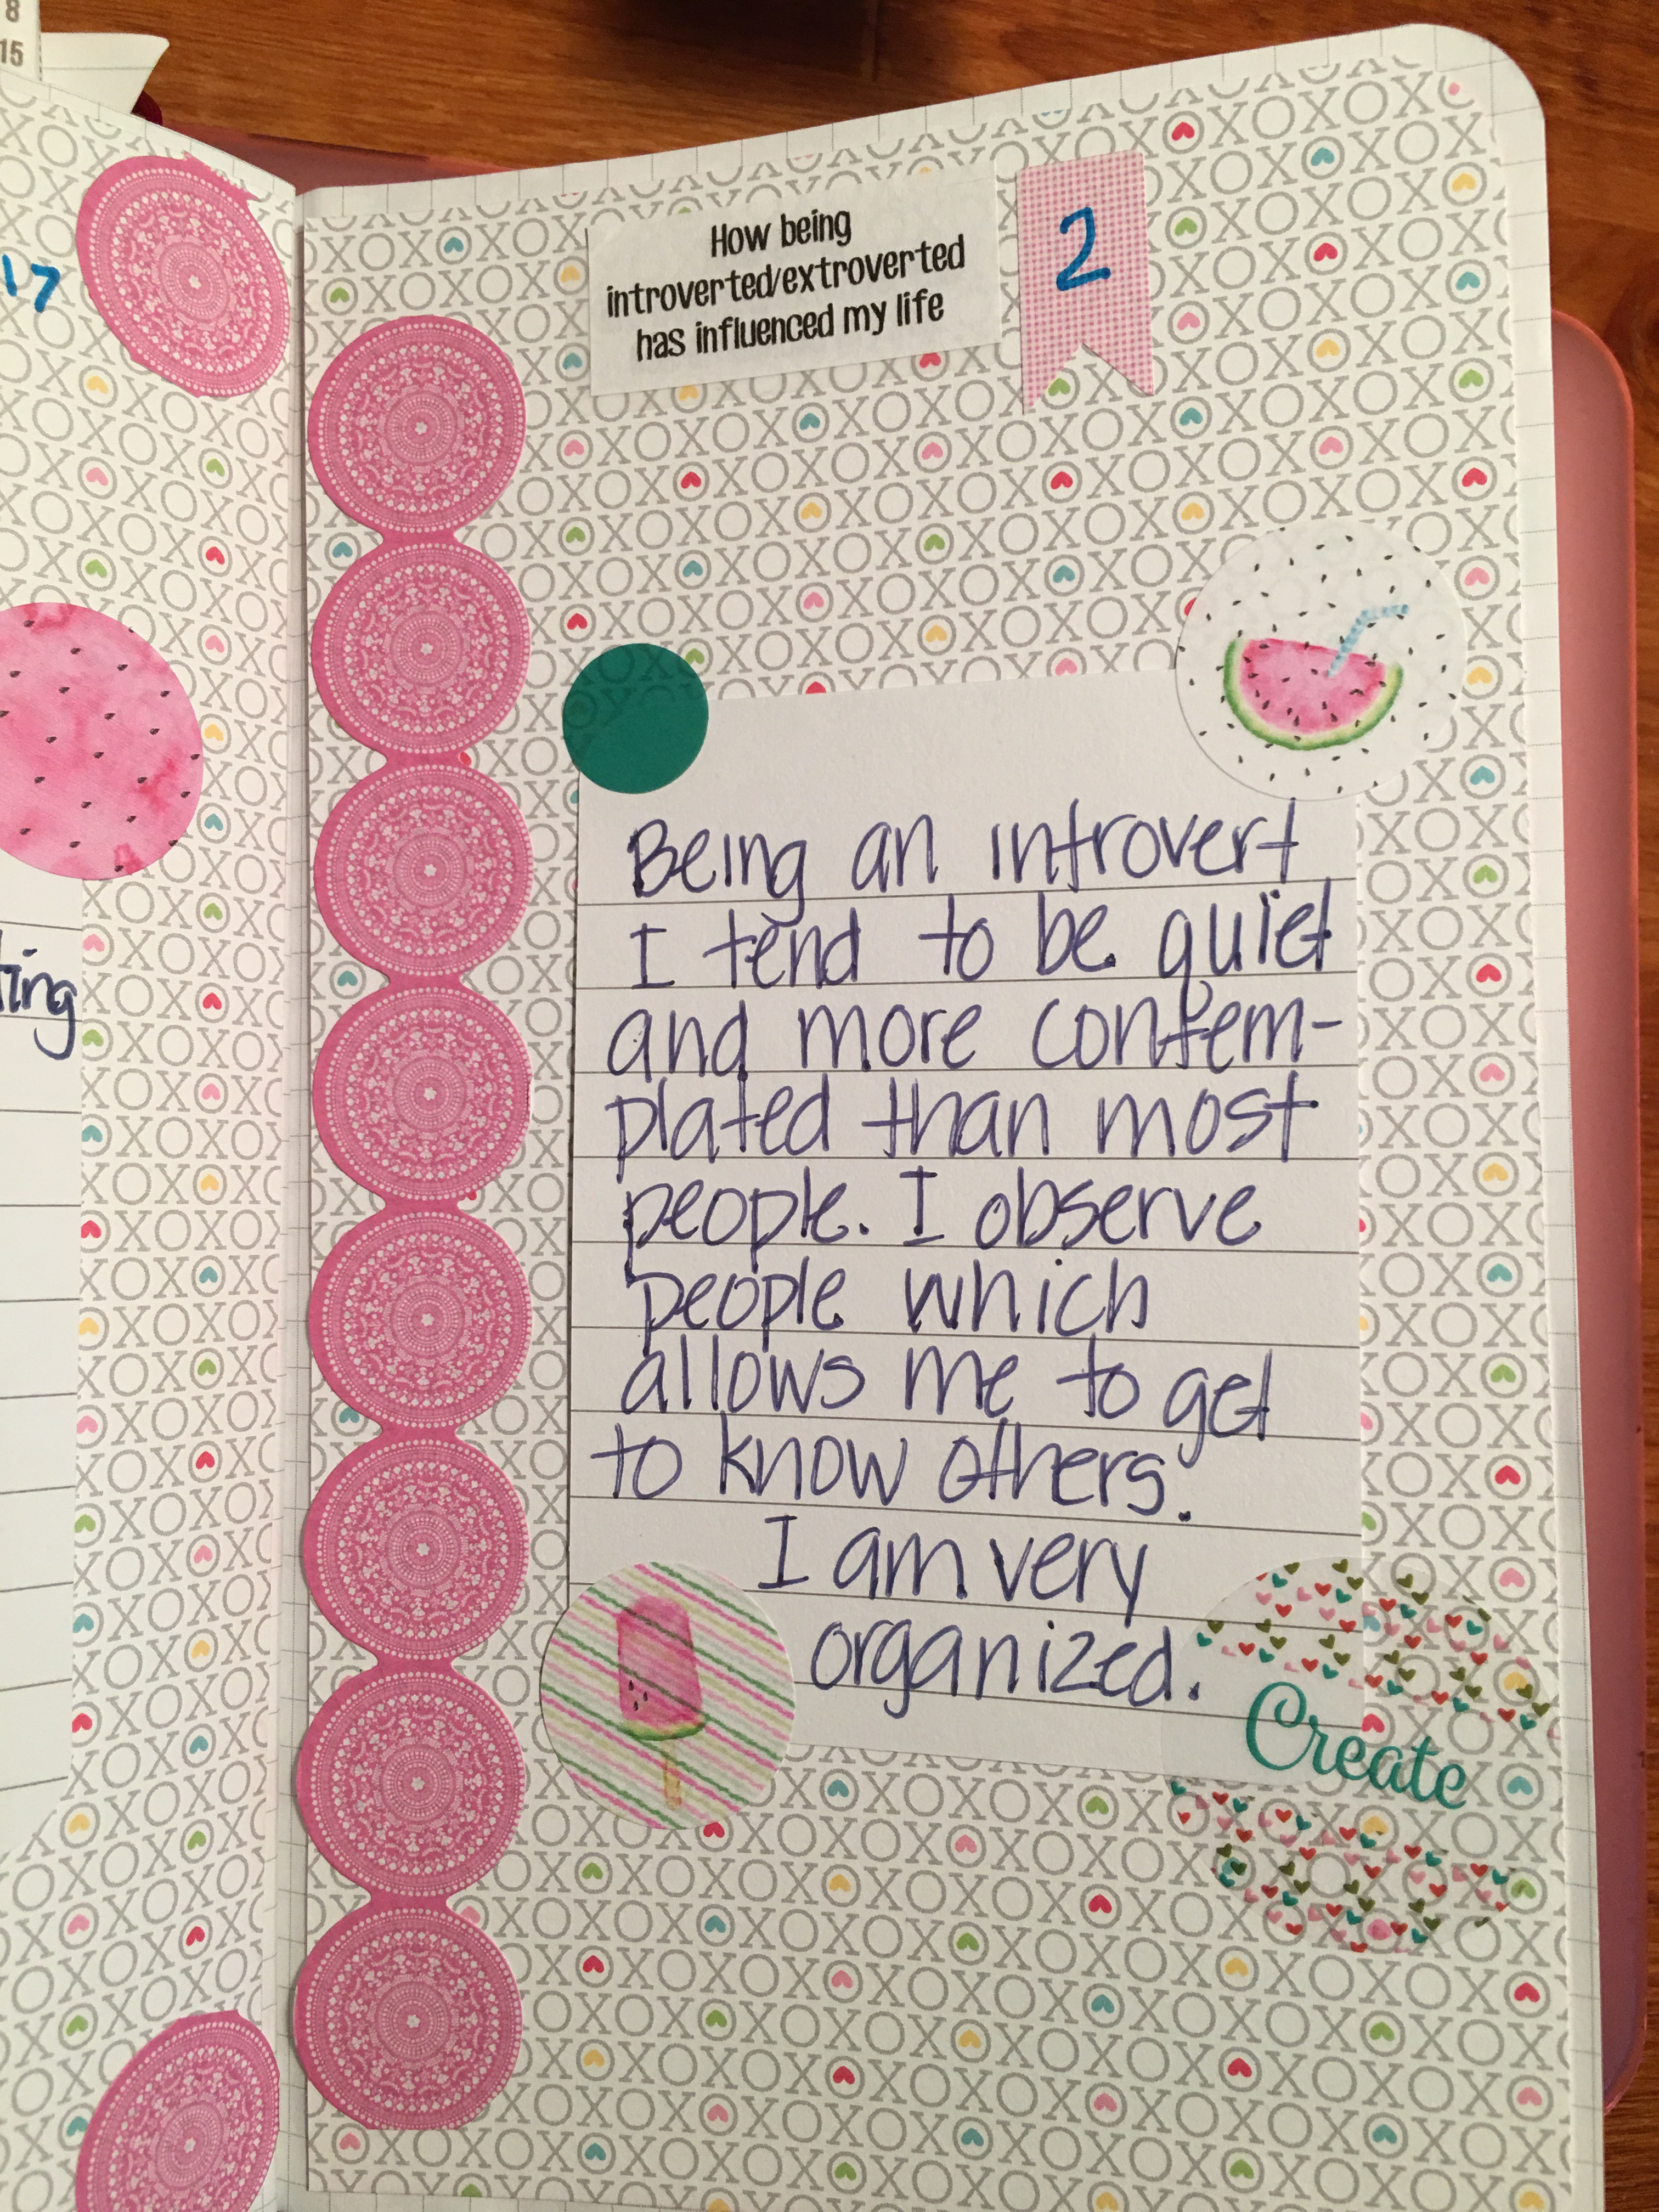 8
15
17
ting
How being
introverted/extroverted
has influenced my life
2
Being an introvert
I tend to be quiet
and more contem-
plated than most
people. I observe
people which
allows me to get
to know others.
I am very
organized.
Create